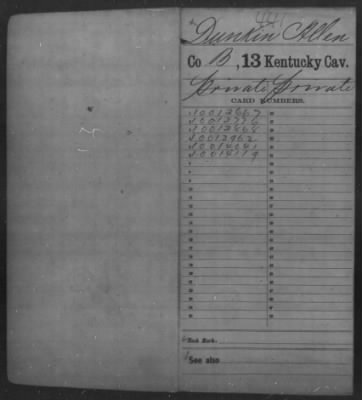 441
Dunkin Allen
Co B, 13 Kentucky Cav.
Private Private
CARD NUMBERS.
50012667
50012776
50012868
50012962
50018119
Book Mark:
See also